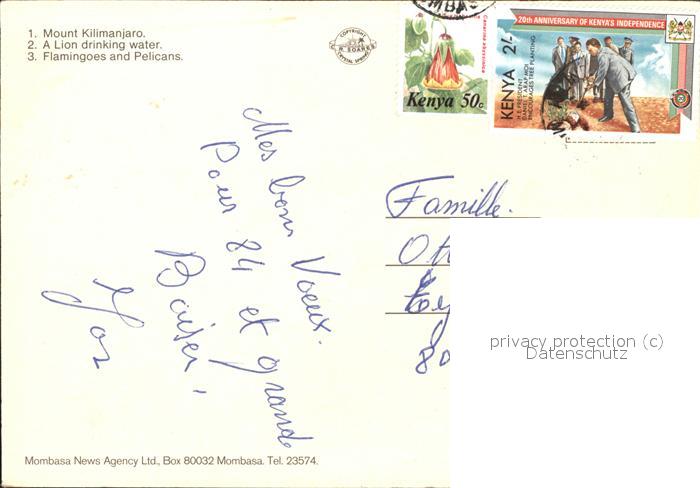 1. Mount Kilimanjaro.
2. A Lion drinking water.
3. Flamingoes and Pelicans.
COPYRIGHT
CRYSTAL SPRINGS
Kenya 50c
20th ANNIVERSARY OF KENYA'S INDEPENDENCE
KENYA 2/-
H.E. PRESIDENT
DANIEL T. ARAP MOI
ENCOURAGES TREE PLANTING
Mes bons Voeux.
Pour 84 et grands
Baiser,
Famille.
Ot
80
privacy protection (c)
Datenschutz
Mombasa News Agency Ltd., Box 80032 Mombasa. Tel. 23574.